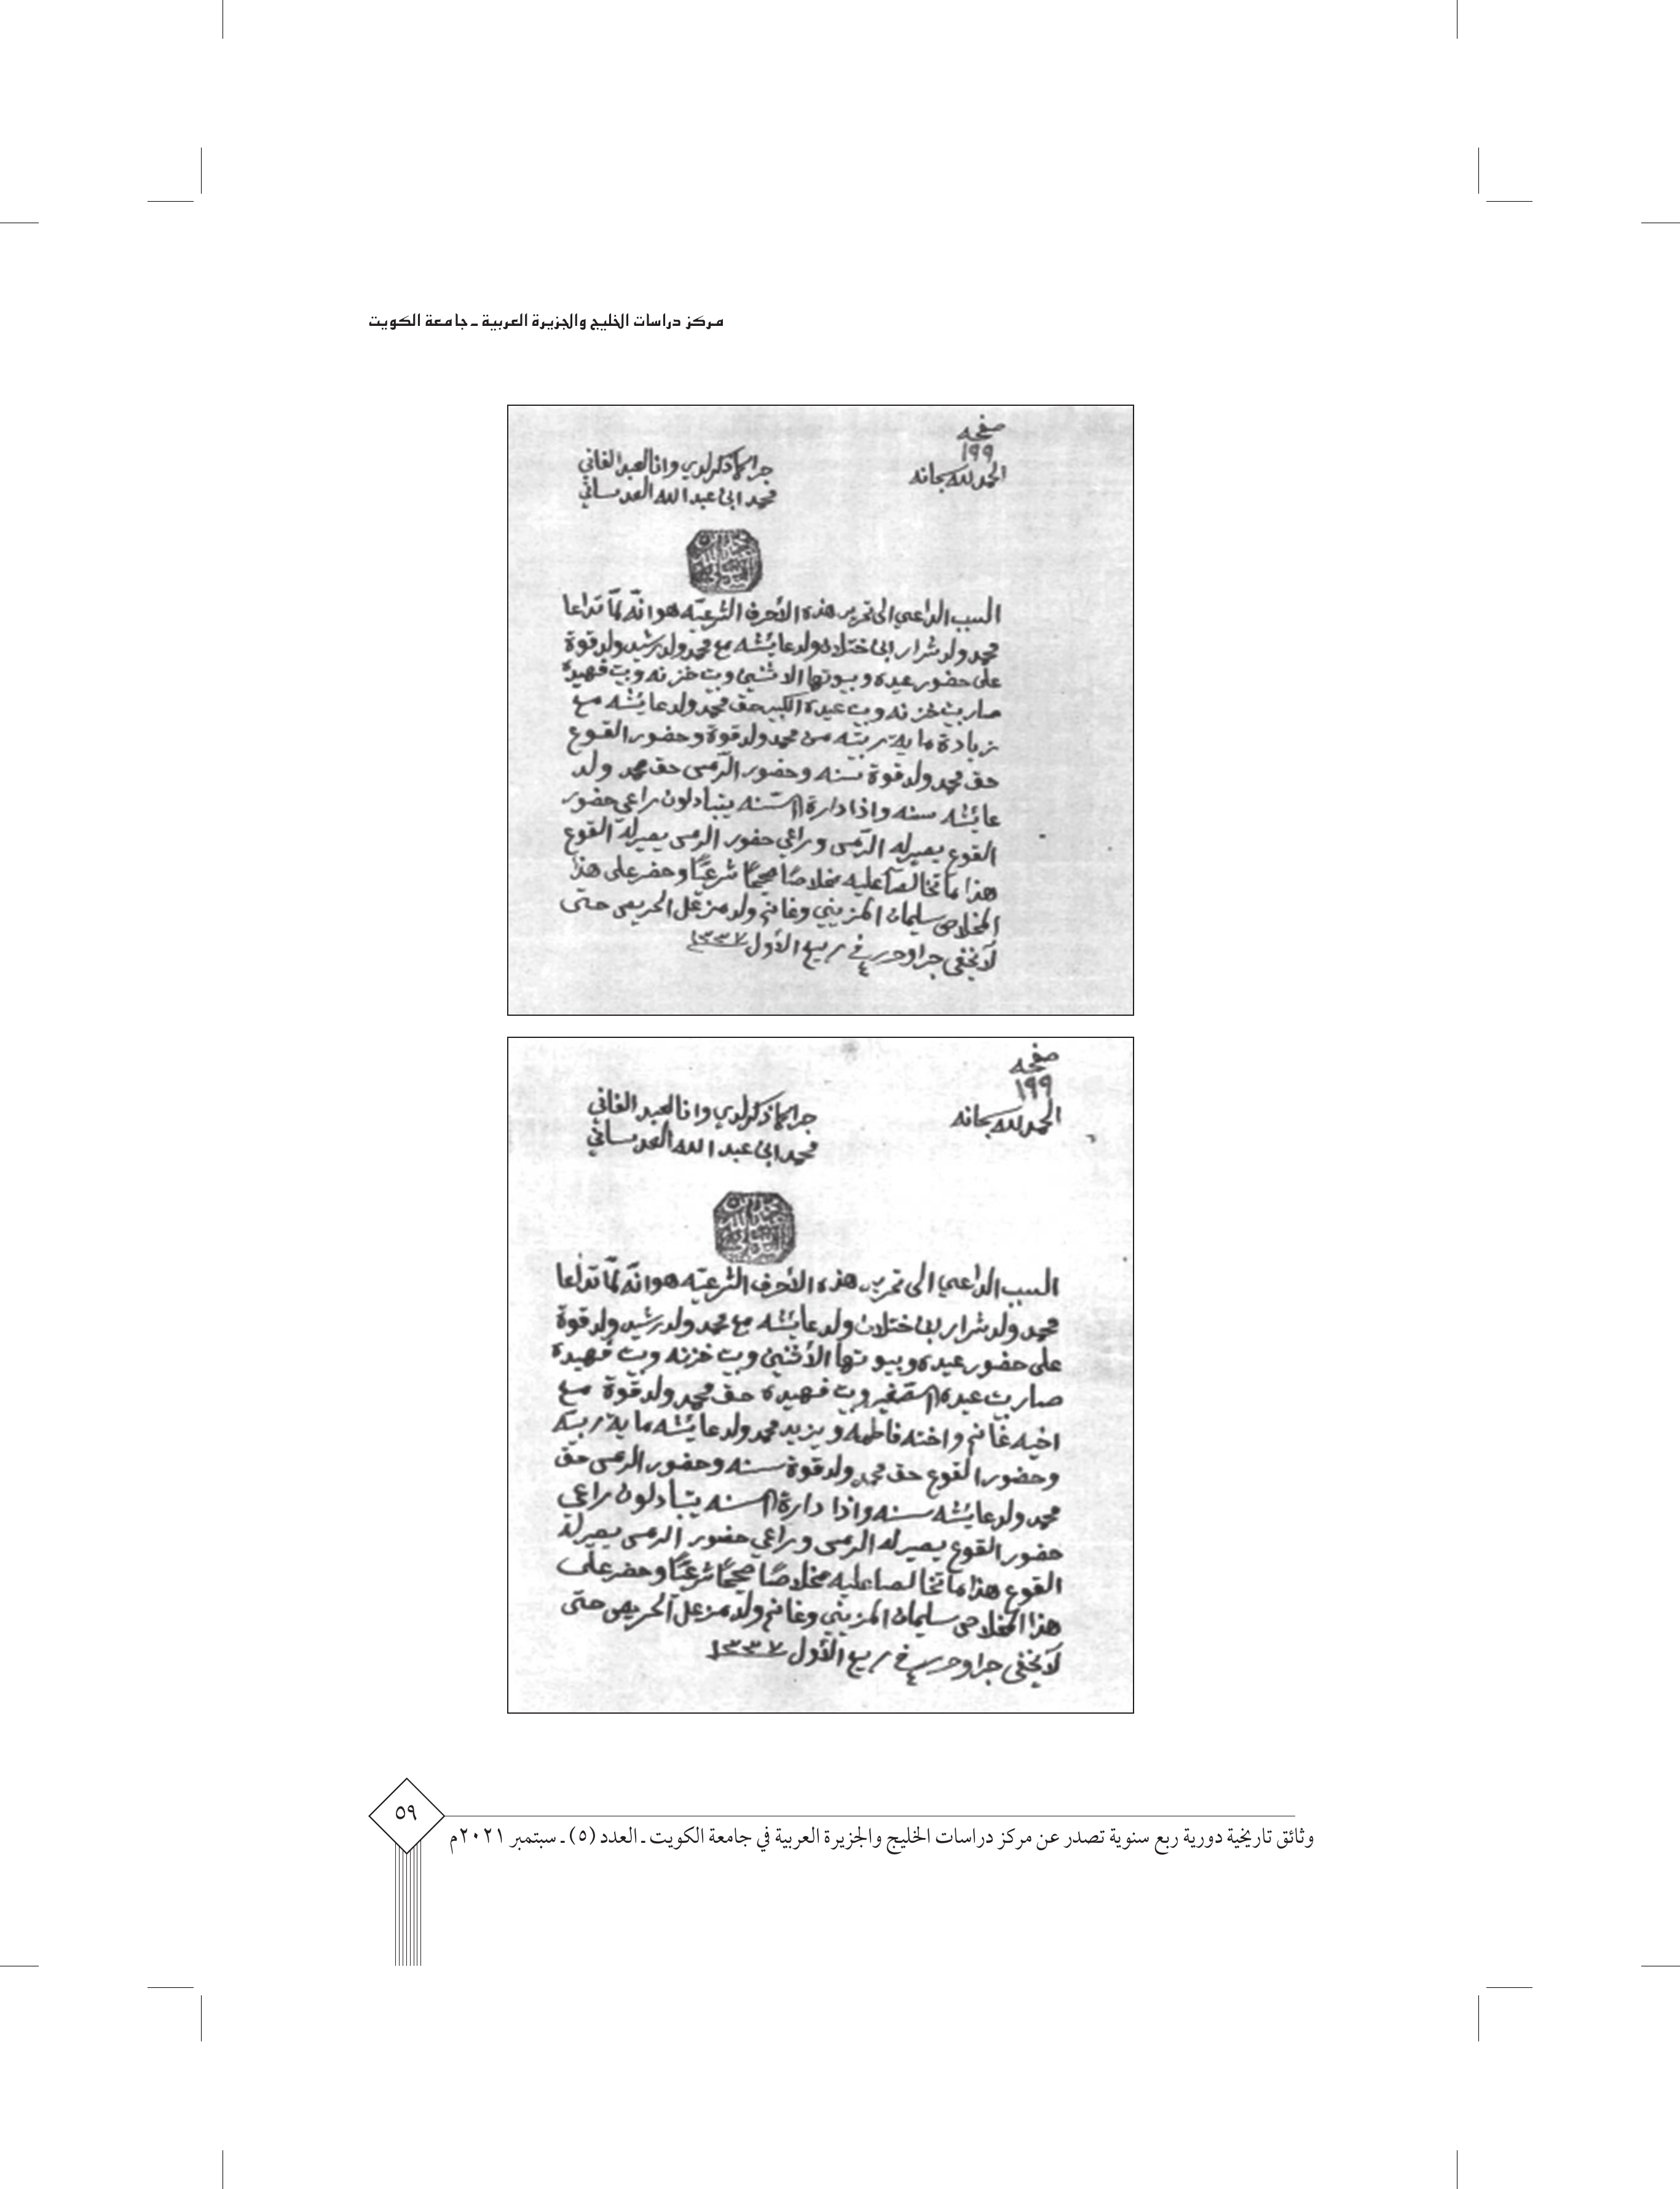 مركز دراسات الخليج والجزيرة العربية ـ جامعة الكويت
صفحه
١٩٩
الحمد لله سبحانه
جرا كما ذكر لدي وانا العبد الفاني
محمد ابن عبد الله العدساني
السبب الداعي الى تحرير هذه الأحرف الشرعيّه هو انّه لمّا تداعا
محمد ولد شرار ابن ختلان ولد عايشه مع محمد ولد رشيد ولد قوة
على حضور عيده وبيوتها الاثنين وبيت خزنه وبيت فهيده
صار بيت خزنه وبيت عيده الكبير حق محمد ولد عايشه مع
زيادة ماية ربيّه من محمد ولد قوة وحضور القوع
حق محمد ولد قوة سنه وحضور الرّمى حق محمد ولد
عايشه سنه واذا دارة السّنه يتبادلون راعي حضور
القوع يصير له الرّمى وراعي حضور الرمى يصير له القوع
هذا ما تخالصا عليه مخلاصًا صحيحًا شرعيًا وحضر على هذا
المخلاص سليمان المزيني وغانم ولد مزعل الحريص حتى
لا يخفى جرا وحرر في ٤ ربيع الأول ١٣٣٧
صفحه
١٩٩
الحمد لله سبحانه
جرا كما ذكر لدي وانا العبد الفاني
محمد ابن عبد الله العدساني
السبب الداعي الى تحرير هذه الأحرف الشرعيّه هو انّه لمّا تداعا
محمد ولد شرار ابن ختلان ولد عايشه مع محمد ولد رشيد ولد قوة
على حضور عيده وبيوتها الأثنين وبيت خزنه وبيت فهيدة
صار بيت عيده الصّغير وبيت فهيده حق محمد ولد قوة مع
اخيه غانم واخته فاطمه ويزيد محمد ولد عايشه ماية ربيّه
وحضور القوع حق محمد ولد قوة سنه وحضور الرمى حق
محمد ولد عايشه سنه واذا دارة السنه يتبادلون راعي
حضور القوع يصير له الرمى وراعي حضور الرمى يصير له
القوع هذا ما تخالصا عليه مخلاصًا صحيحًا شرعيًا وحضر على
هذا المخلاص سليمان المزيني وغانم ولد مزعل الحريص حتى
لا يخفى جرا وحرر في ٤ ربيع الأول ١٣٣٧
٥٩
وثائق تاريخية دورية ربع سنوية تصدر عن مركز دراسات الخليج والجزيرة العربية في جامعة الكويت ـ العدد (٥) ـ سبتمبر ٢٠٢١م